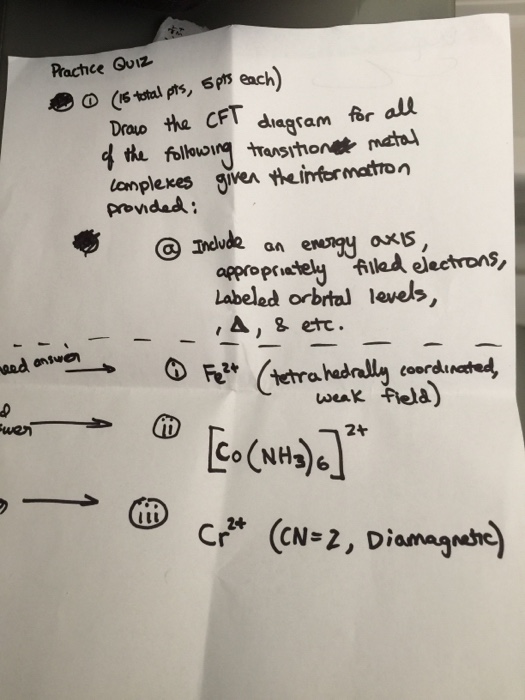 Practice Quiz
① (15 total pts, 5 pts each)
Draw the CFT diagram for all
of the following transition metal
complexes given the information
provided:
ⓐ Include an energy axis,
appropriately filled electrons,
Labeled orbital levels,
, Δ, & etc.
need answer → ⓘ Fe²⁺ (tetrahedrally coordinated,
weak field)
→ ⓘⓘ [Co(NH₃)₆]²⁺
→ ⓘⓘⓘ Cr²⁺ (CN=2, Diamagnetic)